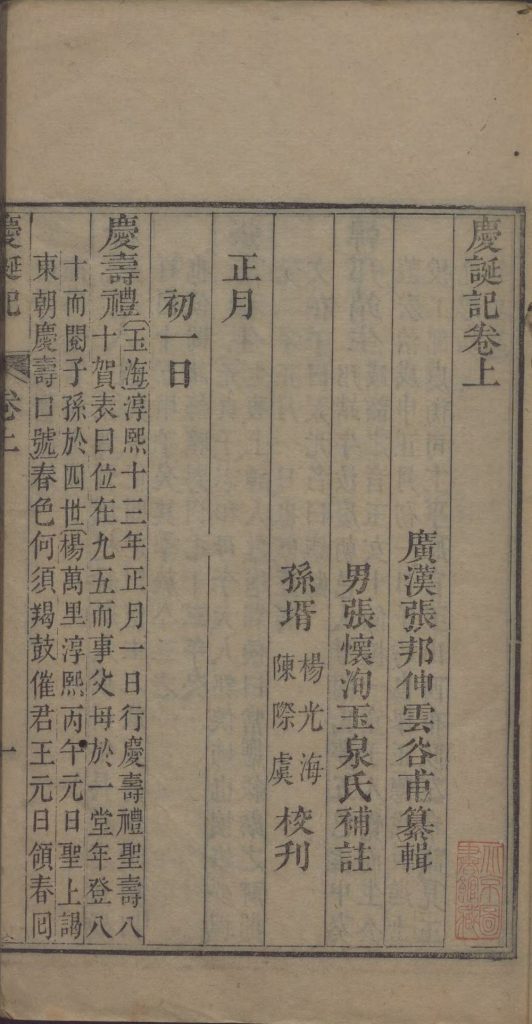 慶誕記卷上
廣漢張邦伸雲谷甫纂輯
男張懷洵玉泉氏補註
孫壻 楊光海 陳際虞 校刋
正月
初一日
慶壽禮 玉海淳熙十三年正月一日行慶壽禮聖壽八
十賀表曰位在九五而事父母於一堂年登八
十而閱子孫於四世楊萬里淳熙丙午元日聖上謁
東朝慶壽口號春色何須羯鼓催君王元日領春囘
慶誕記 卷上 一